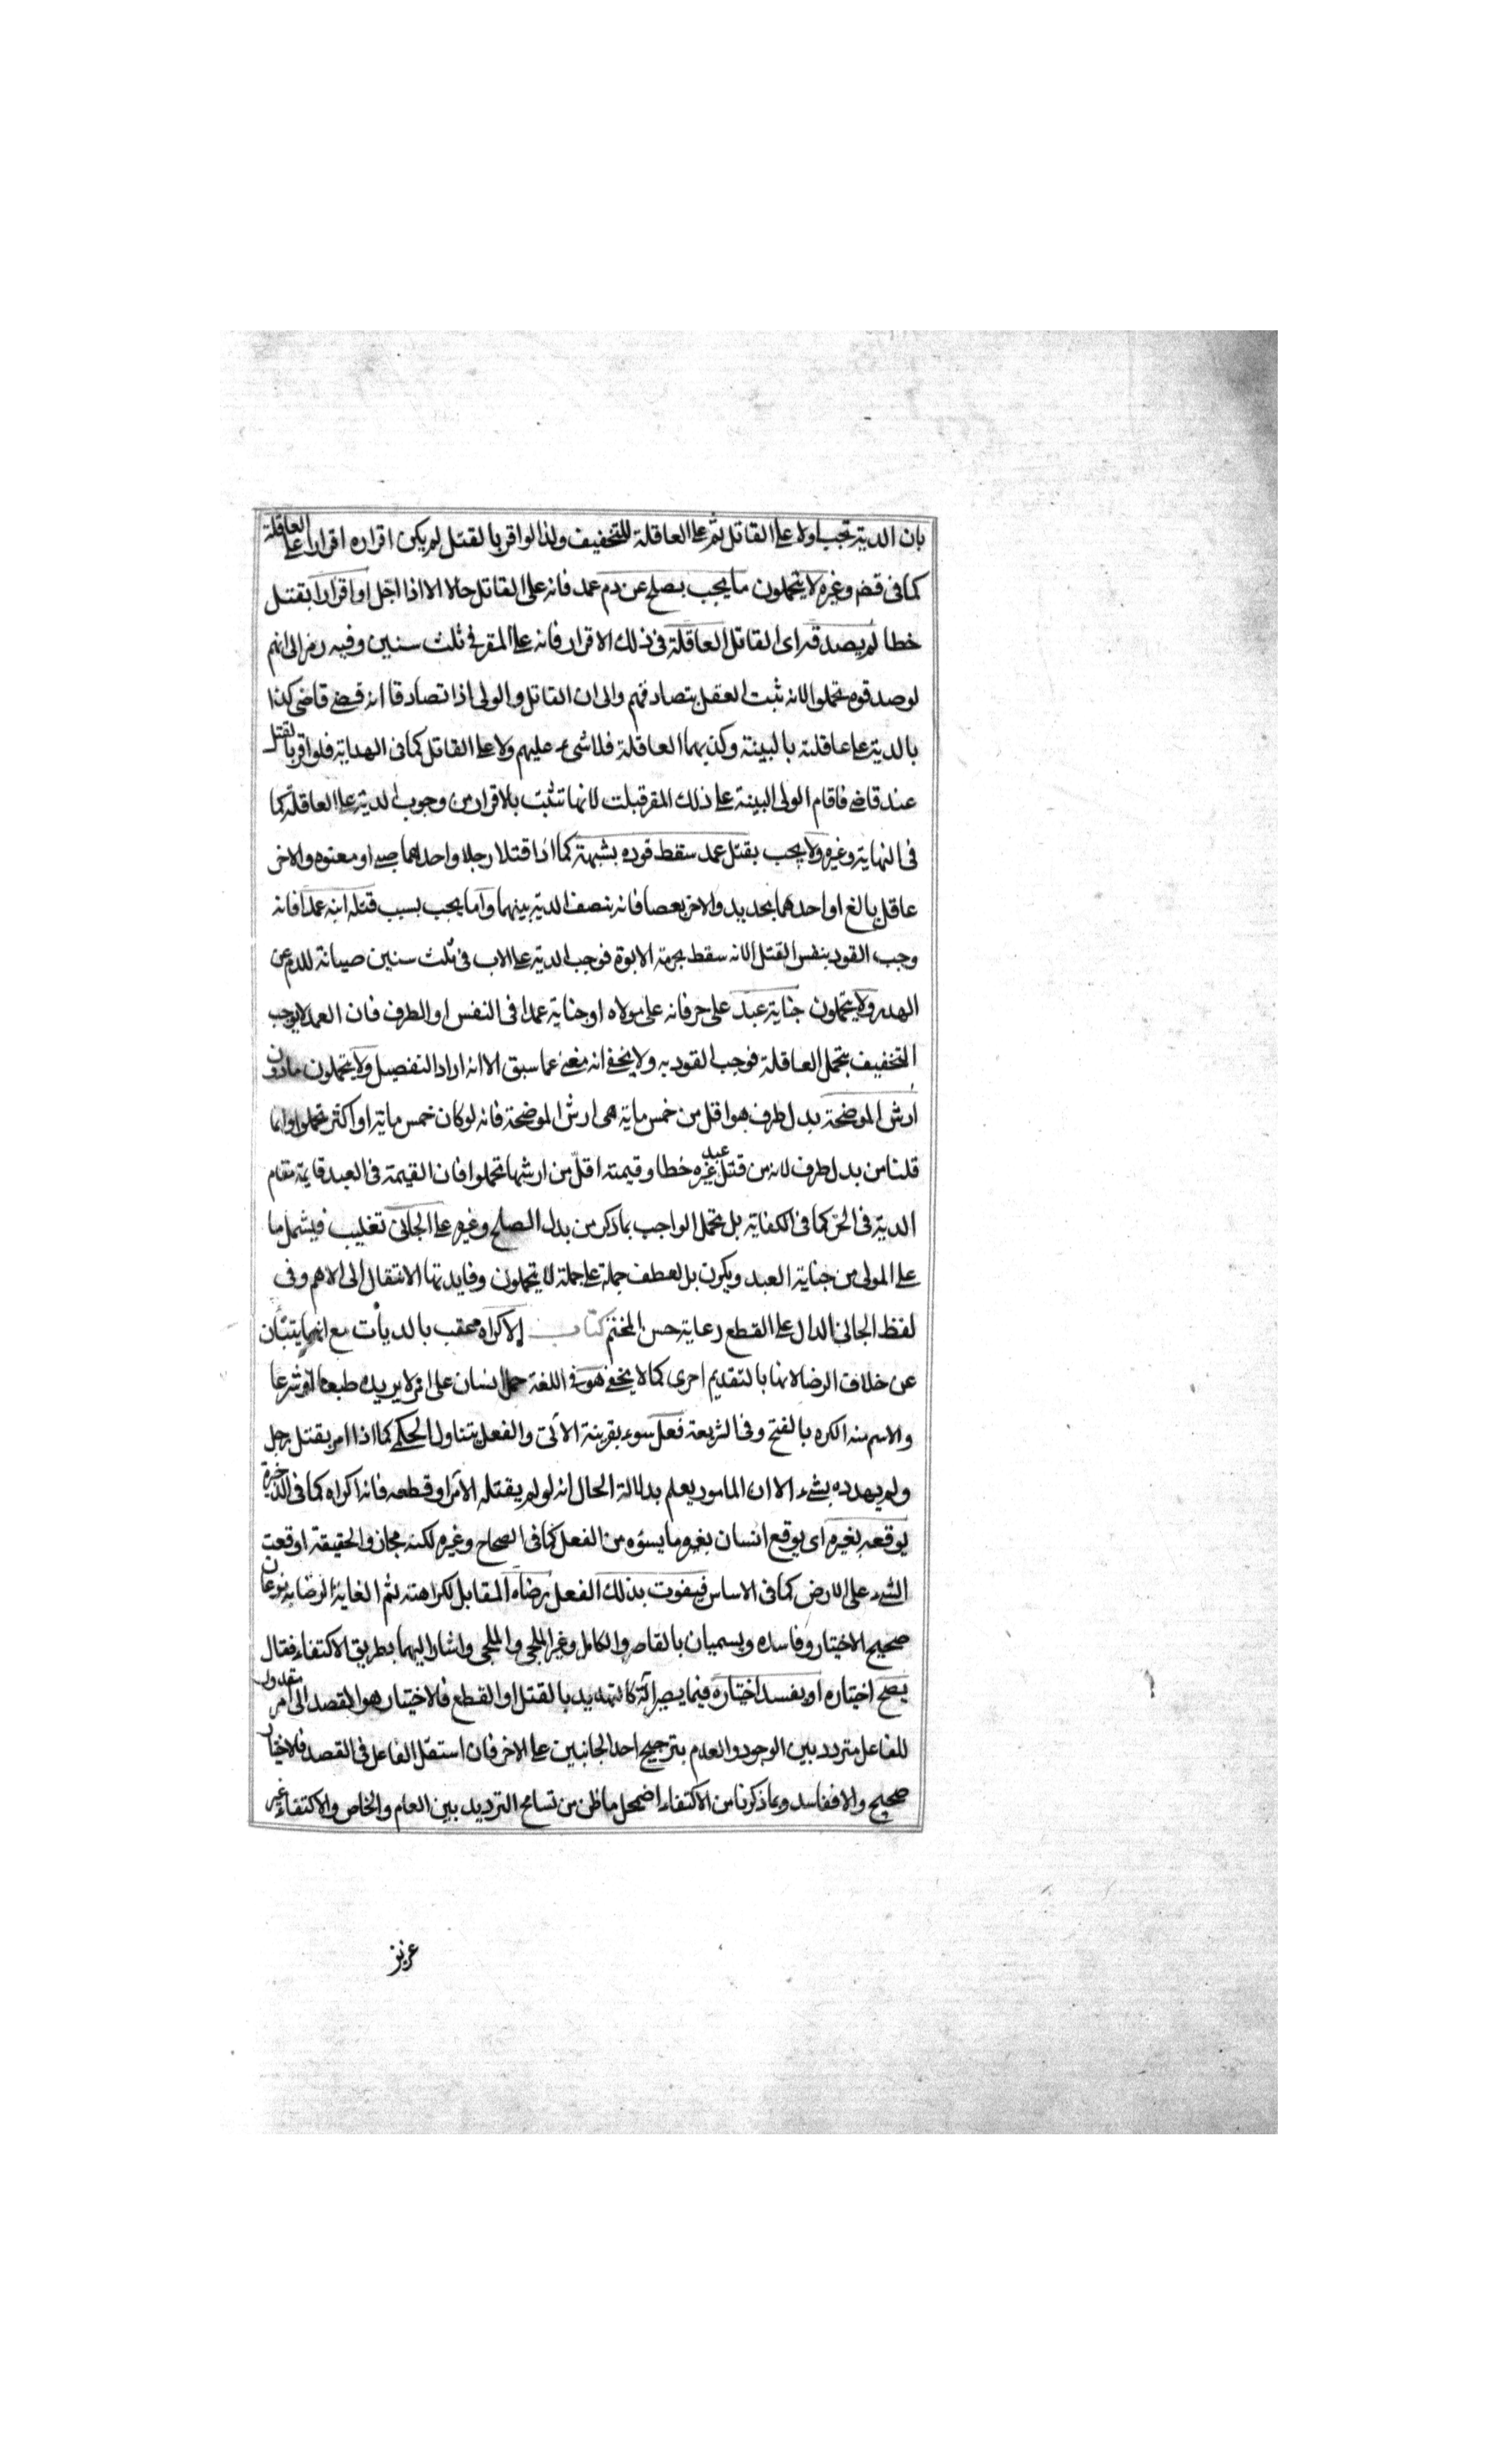 بان الدية تجب اولا على القاتل ثم على العاقلة للتخفيف ولذا لو اقر بالقتل لم يكن اقراره اقرارا على العاقلة
كما فى قضم وغيره لا يتحملون ما يجب بصلح عن دم عمد فانه على القاتل حالا الا اذا اجل او اقرارا بقتل
خطا لم يصدقه اى القاتل العاقلة فى ذلك الاقرار فانه على المقر فى ثلث سنين وفيه رمز الى انهم
لو صدقوه تحملوا لانه ثبت العقل بتصادقهم والى ان القاتل والولى اذا تصادقا انه قضى قاضى كذا
بالدية على عاقلته بالبينة وكذبهما العاقلة فلا شىء عليهم ولا على القاتل كما فى الهداية فلو اقر بالقتل
عند قاض فاقام الولى البينة على ذلك المقر قبلت لانها تثبت بالاقرار من وجوب الدية على العاقلة كما
فى النهاية وغيره ولا يجب بقتل عمد سقط قوده بشبهة كما اذا قتلا رجلا واحدهما صبى او معتوه والاخر
عاقل بالغ او احدهما بحديد والاخر بعصا فانه بنصف الدية بينهما واما يجب بسبب قتله ابنه عمدا فانه
وجب القود بنفس القتل الا انه سقط بحرمة الابوة فوجب الدية على الاب فى ثلث سنين صيانة للدم عن
الهدر ولا يتحملون جناية عبد على حر فانه على مولاه او جناية عمدا فى النفس او الطرف فان العمد لا يوجب
التخفيف بتحمل العاقلة فوجب القود به ولا يخفى انه مغن عما سبق الا انه اراد التفصيل ولا يتحملون ما دون
ارش الموضحة بدل طرف هو اقل من خمس ماية هى ارش الموضحة فانه لو كان خمس ماية او اكثر تحملوا وانما
قلنا من بدل طرف لانه من قتل عبد غيره خطا وقيمته اقل من ارشها تحملوا فان القيمة فى العبد قايمة مقام
الدية فى الحر كما فى الكفاية بل يتحمل الواجب بما ذكر من بدل الصلح وغيره على الجانى تغليب فيشمل ما
على المولى من جناية العبد ويكون بل لعطف جملة على جملة لا يتحملون وفايدتها الانتقال الى الاهم وفى
لفظ الجانى الدال على القطع رعاية حسن المختتم كتاب الاكراه عقب بالديات مع انهما ينبئان
عن خلاف الرضا لانها بالتقديم احرى كما لا يخفى هو فى اللغة حمل انسان على امر لا يريده طبعا او شرعا
والاسم منه الكره بالفتح وفى الشريعة فعل سوء بقرينة الآتى والفعل يتناول الحكمى كما اذا امر بقتل رجل
ولم يهدده بشىء الا ان المامور يعلم بدلالة الحال انه لو لم يقتله الآمر او قطعه فانه اكراه كما فى الذخيرة
يوقعه بغيره اى يوقع انسان بغيره ما يسؤه من الفعل كما فى الصحاح وغيره لكنه مجاز والحقيقة اوقعت
الشىء على الارض كما فى الاساس فيفوت بذلك الفعل رضاه المقابل لكراهته ثم الغاية الرضا به نوعان
صحيح الاختيار وفاسده ويسميان بالقاصر والكامل وغير الملجى والملجى واشار اليهما بطريق الاكتفاء فقال
يصح اختياره او يفسد اختياره فيما يصير آلة كالتهديد بالقتل او القطع فالاختيار هو القصد الى امر مقدور
للفاعل متردد بين الوجود والعدم بترجيح احد الجانبين على الاخر فان استقل الفاعل فى القصد فالاختيار
صحيح والا ففاسد وبما ذكرنا من الاكتفاء اضمحل ما ظن من تسامح الترديد بين العام والخاص والاكتفاء غير
عزيز